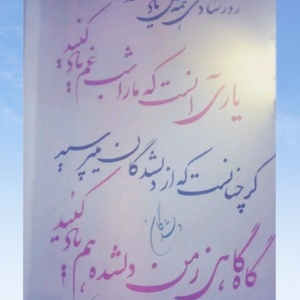 روز شادی همه کس یاد
کنید
یار آنست که ما را شب غم یاد
کنید
گر چنانست که از دلشدگان میپرسید
دلشدگان
گاه گاهی ز من دلشده هم یاد
کنید